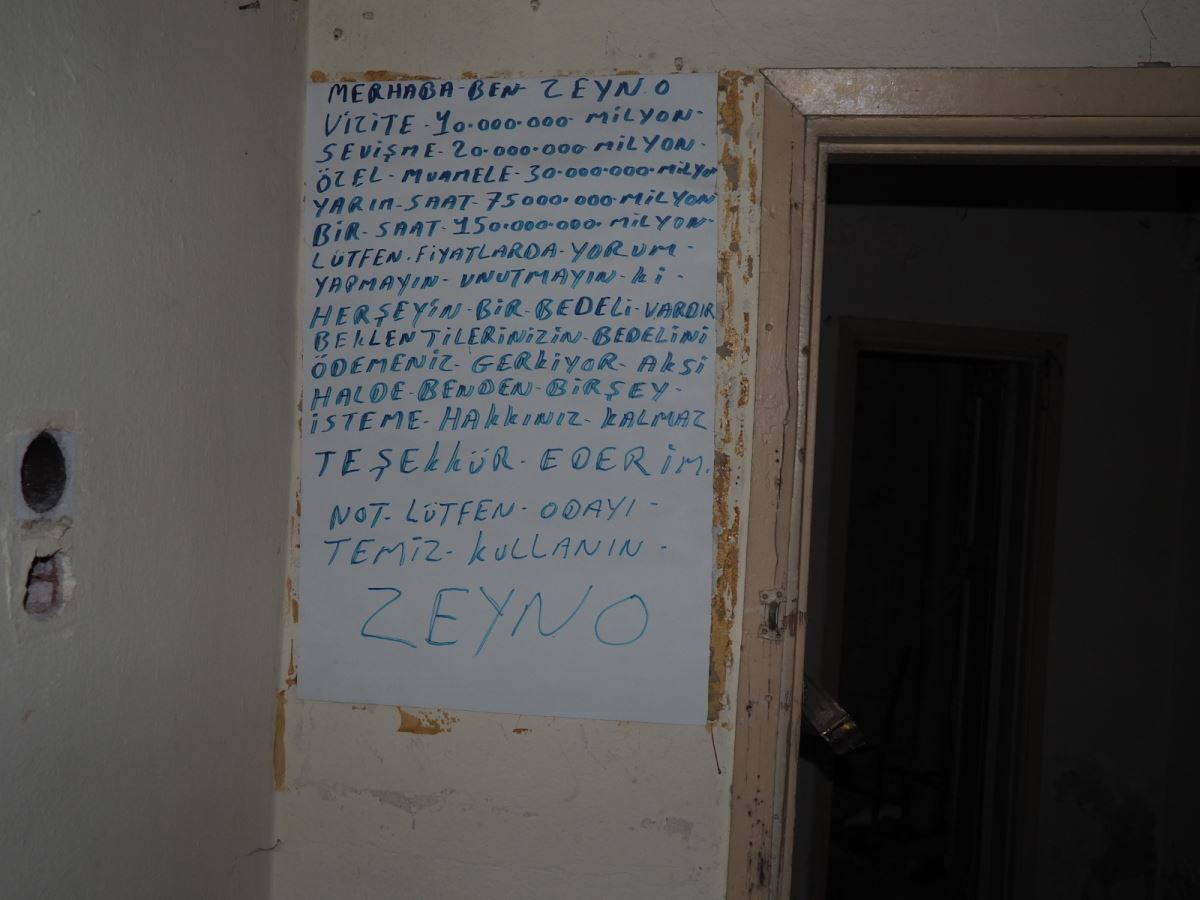 MERHABA-BEN-ZEYNO
VİZİTE-10.000.000-MİLYON-
SEVİŞME-20.000.000-MİLYON-
ÖZEL-MUAMELE-30.000.000-MİLYON
YARIM-SAAT-75000.000-MİLYON
BİR-SAAT-150.000.000-MİLYON-
LÜTFEN.FİYATLARDA-YORUM-
YAPMAYIN-UNUTMAYIN-Kİ-
HERŞEYİN-BİR-BEDELİ-VARDIR
BEKLENTİLERİNİZİN-BEDELİNİ
ÖDEMENİZ-GERKİYOR-AKSİ
HALDE-BENDEN-BİRŞEY-
İSTEME-HAKKINIZ-KALMAZ
TEŞEKKÜR-EDERİM.
NOT-LÜTFEN-ODAYI-
TEMİZ-KULLANIN-
ZEYNO